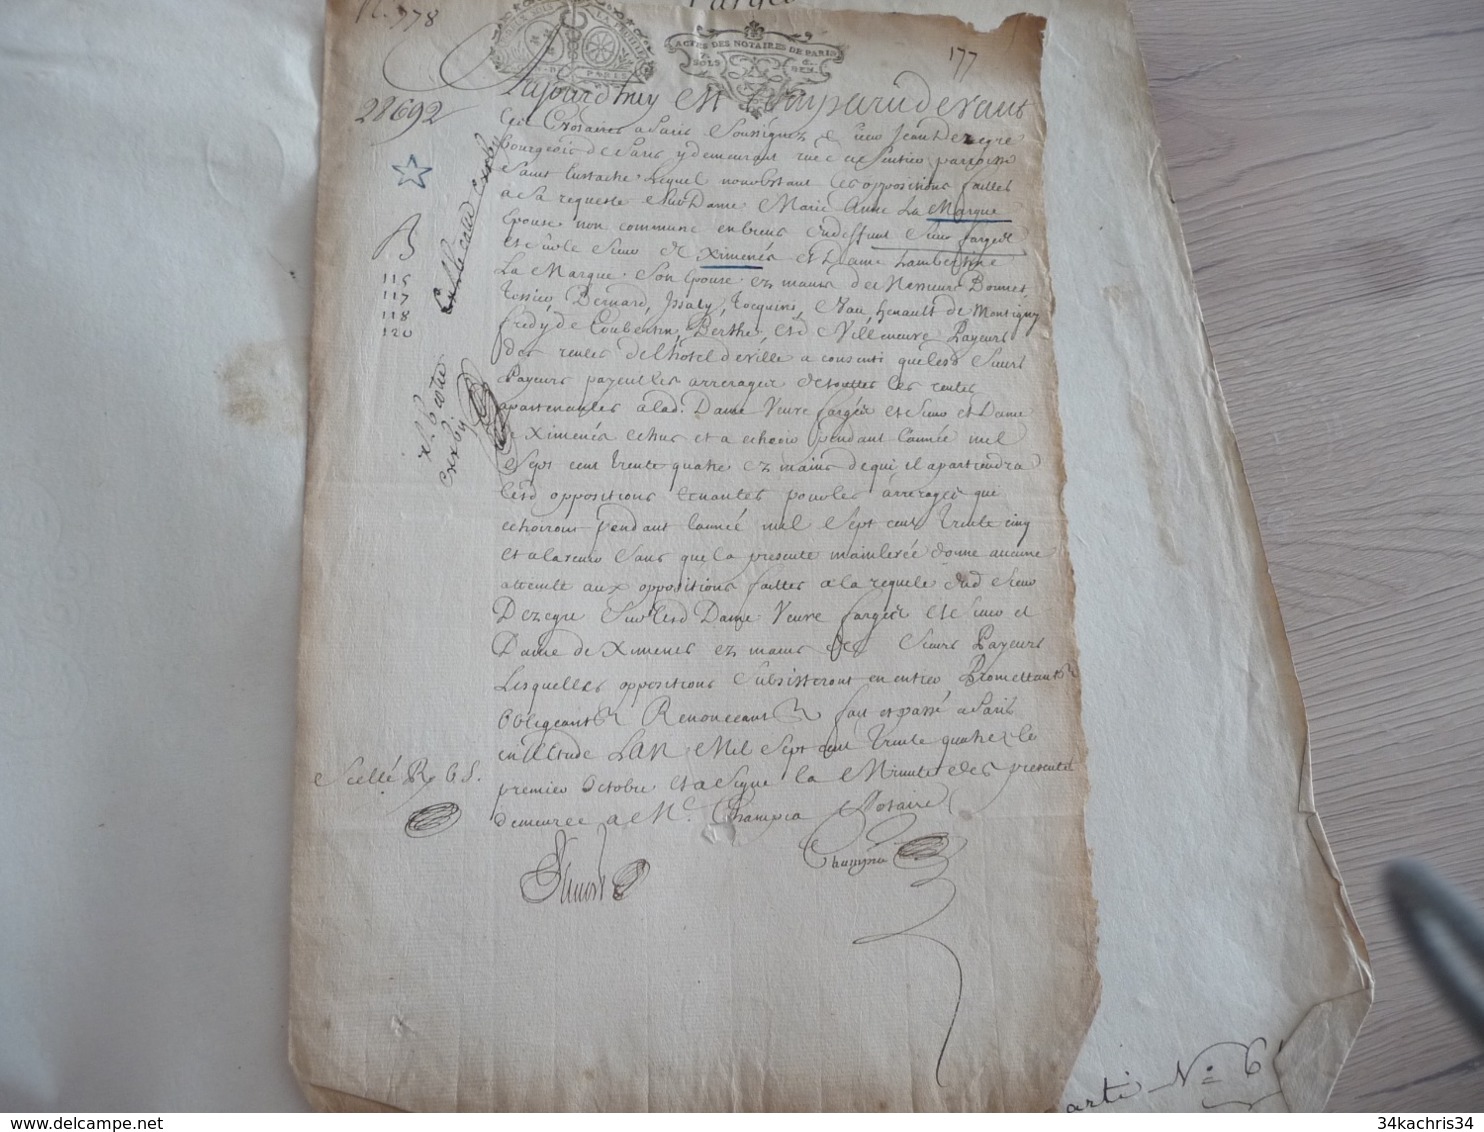 N. 778
ACTES DES NOTAIRES DE PARIS
SOLS
DEN.
PARIS
177
28692
Aujourdhuy est comparu devant
Les Notaires a Paris Soussignez Sieur Jean Dezegre
bourgeois de Paris y demeurant rue du Sentier parroisse
Saint Eustache Lequel nonobstant les oppositions faittes
a sa requeste Sur Dame Marie Anne La Marque
Epouse non commune en biens dudeffunt Sieur farges
et sur le Sieur de Ximenés et Dame Lambertine
La Marque Son Epouse ez mains de Messieurs Bonnet,
Tessier, Bernard, Issaly, Tocquiny, Nau, henault de Montigny
fredy de Coubertin, Berthe, et de Villeneuve Payeurs
des rentes de l'hotel de ville a consenti que lesd Sieurs
Payeurs payent les arrerages de touttes les rentes
apartenantes a lad. Dame Veuve fargés et Sieur et Dame
de Ximenés echus et a echeoir pendant l'année mil
Sept cent trente quatre ez mains de qui il apartiendra
lesd oppositions tenantes pour les arrerages qui
echoiront pendant l'année mil Sept cent trente cinq
et a l'avenir Sans que la presente mainlevée donne aucune
atteinte aux oppositions faittes a la requete dud Sieur
Dezegre Sur lesd Dame Veuve fargés et Sieur et
Dame de Ximenes ez mains desd Sieurs Payeurs
Lesquelles oppositions Subsisteront en entier Promettant
Obligeant Renonceant fait et passé a Paris
en Etude L'AN Mil Sept cent trente quatre le
premier Octobre et a signé la Minute des presentes
demeurée a Me. Champia Notaire
115
117
118
120
Scellé
Champia
arti N° 6
34kachris34